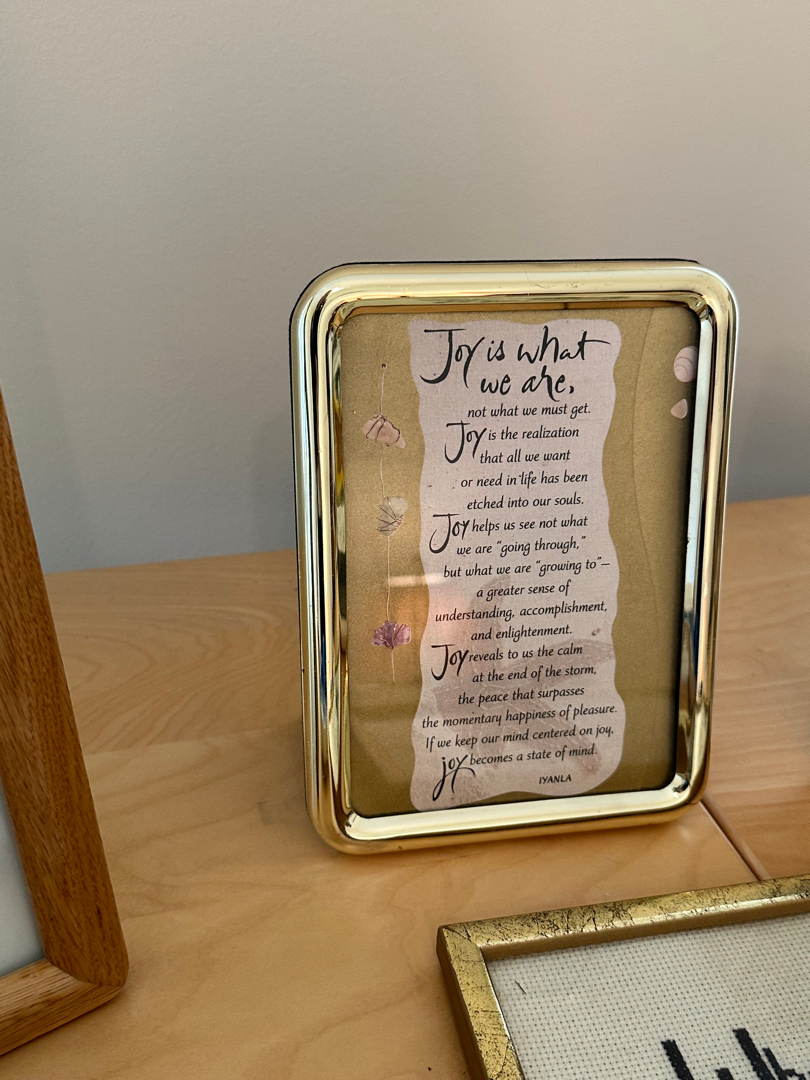 Joy is what
we are,
not what we must get.
Joy is the realization
that all we want
or need in life has been
etched into our souls.
Joy helps us see not what
we are “going through,”
but what we are “growing to”—
a greater sense of
understanding, accomplishment,
and enlightenment.
Joy reveals to us the calm
at the end of the storm,
the peace that surpasses
the momentary happiness of pleasure.
If we keep our mind centered on joy,
joy becomes a state of mind.
IYANLA